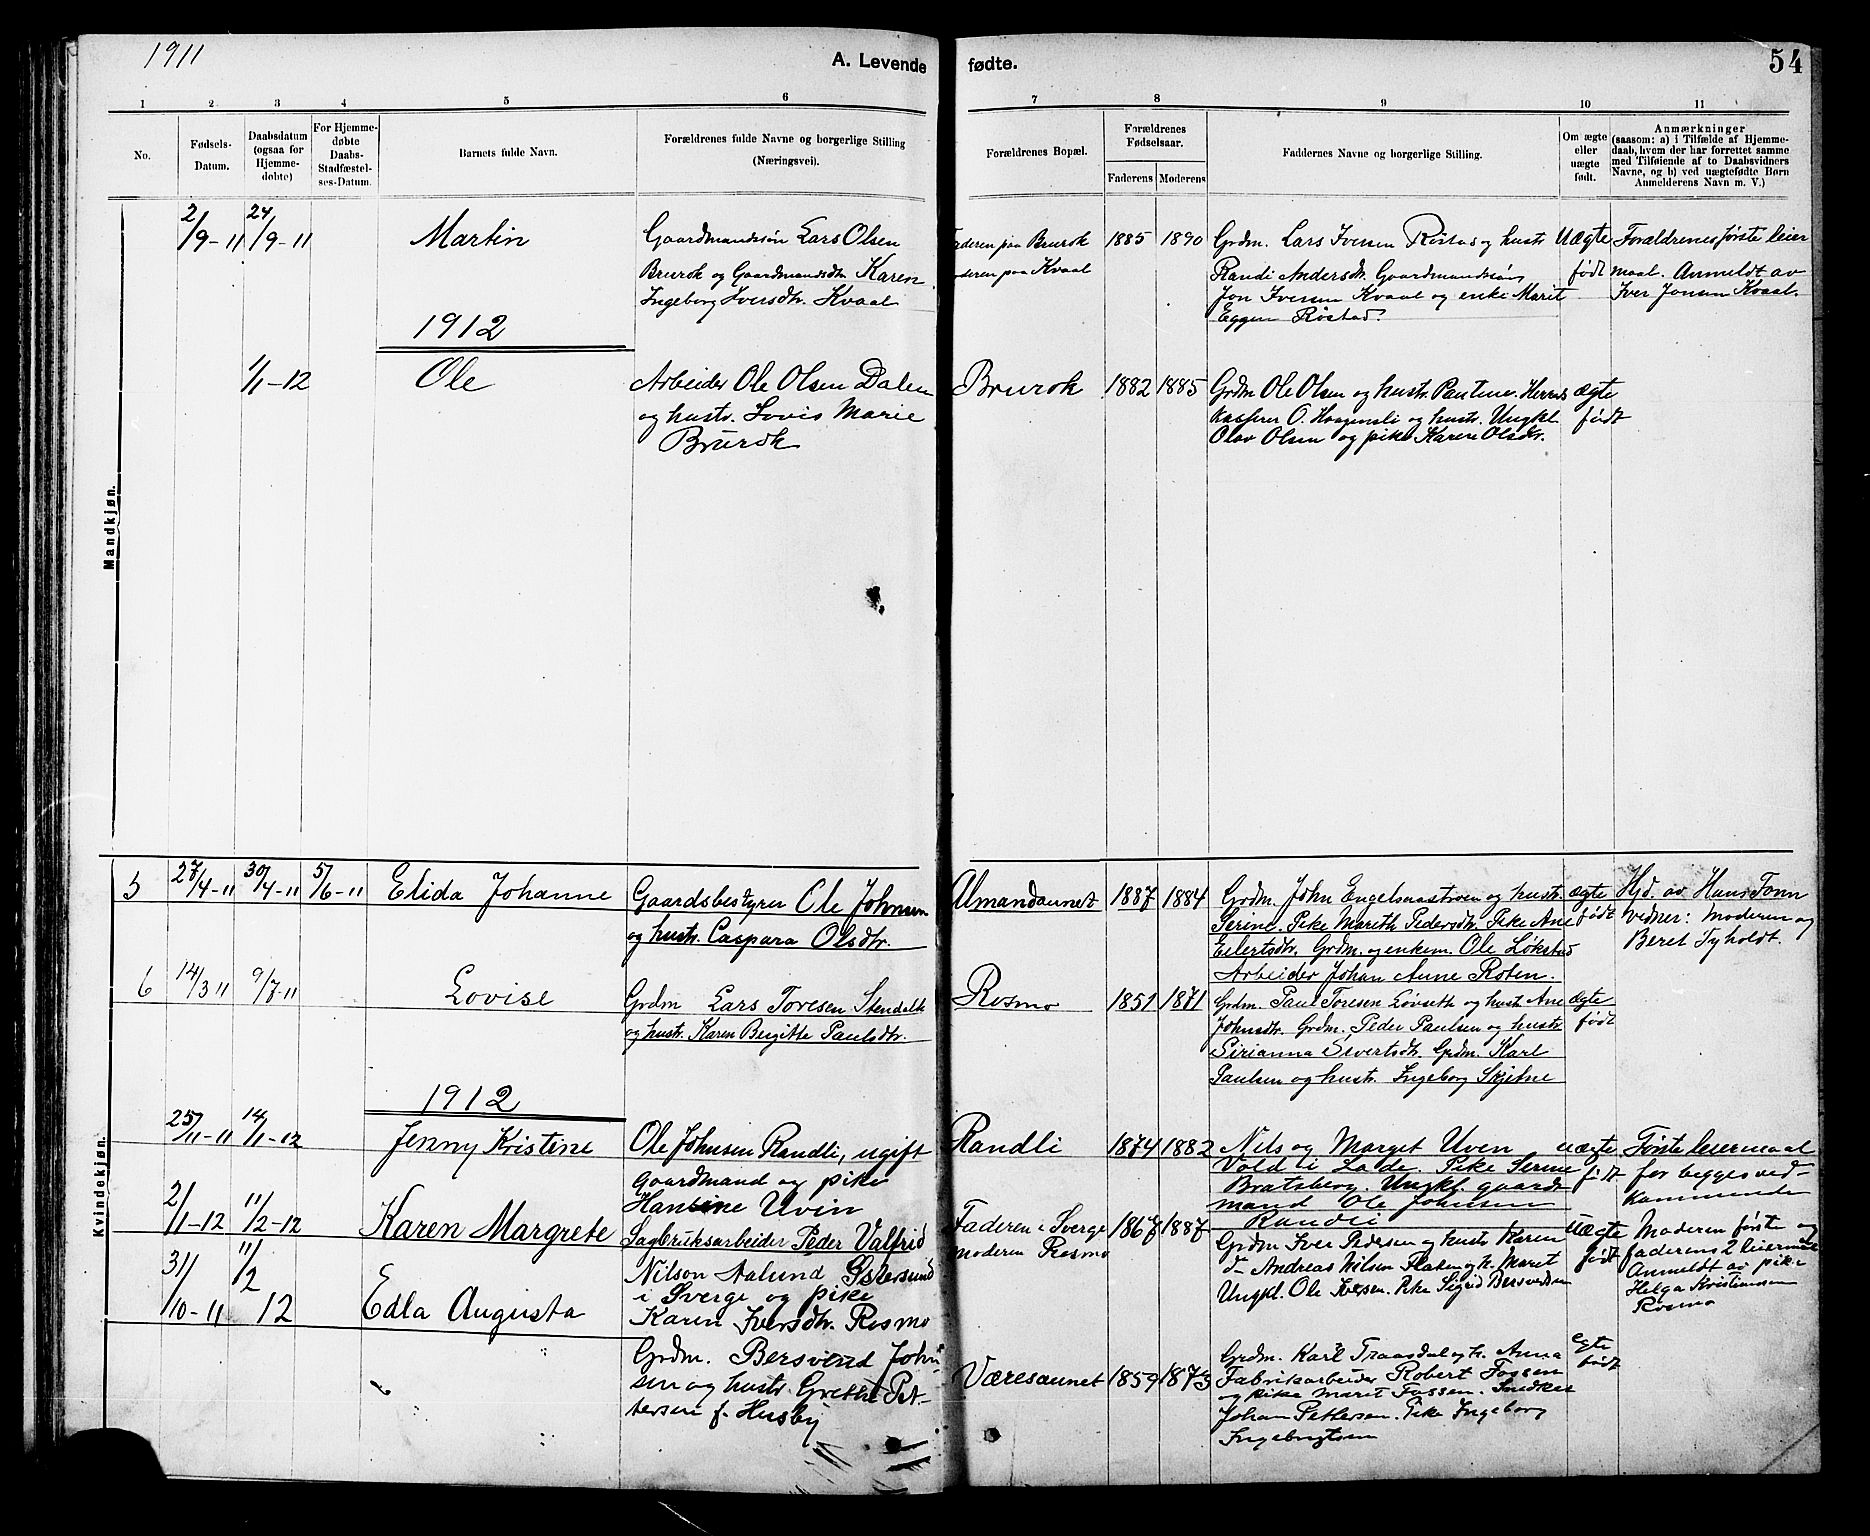 1911
A. Levende fødte.
54
1 2 3 4 5 6 7 8 9 10 11
No.
Fødsels-
Datum.
Daabsdatum
(ogsaa for
Hjemme-
døbte)
For Hjemme-
døbte
Daabs-
Stadfæstel-
ses-Datum.
Barnets fulde Navn.
Forældrenes fulde Navne og borgerlige Stilling
(Næringsvei).
Forældrenes Bopæl.
Forældrenes
Fødselsaar.
Faderens Moderens
Faddernes Navne og borgerlige Stilling.
Om ægte
eller
uægte
født.
Anmærkninger
(saasom: a) i Tilfælde af Hjemme-
daab, hvem der har forrettet samme
med Tilføiende af to Daabsvidners
Navne, og b) ved uægtefødte Børn
Anmelderens Navn m. V.)
Mandkjøn.
2/9-11 24/9-11
Martin
Gaardmandssøn Lars Olsen
Brurok og Gaardmandsdtr. Karen
Ingeborg Iversdtr. Kvaal
Faderen paa Brurok
Moderen paa Kvaal
1885 1890
Grdm. Lars Iversen Røstad og hustr
Randi Andersdtr. Gaardmandssøn
Jon Iversen Kvaal og enke Marit
Eggen Røstad.
Uægte
født
Forældrenes første leier
maal. Anmeldt av
Iver Jonsen Kvaal.
1912
1/1-12
Ole
Arbeider Ole Olsen Dalen
og hustr. Lovis Marie
Brurok
Brurok
1882 1885
Grdm Ole Olsen og hustr. Pauline. Herreds
kasserer O. Haagensli og hustr. Ungkl.
Olav Olsen og pike Karen Olsdtr.
ægte
født
Kvindekjøn.
5
27/4-11 30/4-11 5/6-11
Elida Johanne
Gaardsbestyrer Ole Johnsen
og hustr. Caspara Olsdtr.
Almandaunet
1887 1884
Grdm. John Engelsaastrøen og hustr.
Serine. Pike Marith Pedersdtr. Pike Ane
Eilertsdtr. Grdm. og enkem. Ole Løkstad
Arbeider Johan Arne Roten.
ægte
født
Hjd. av Hans Tonn
vidner: Moderen og
Beret Tyholdt.
6
14/3 11 9/7-11
Lovise
Grdm Lars Toresen Stendalk
og hustr. Karen Birgitte Paulsdtr.
Rosmo
1851 1871
Grdm. Paul Toresen Løvseth og hustr Ane
Johnsdtr. Grdm. Peder Paulsen og hustr
Sirianna Sivertsdtr. Grdm. Karl
Paulsen og hustr. Ingeborg Skjelne
ægte
født
1912
25/11-11 14/1-12
Jenny Kristine
Ole Johnsen Randli, ugift
gaardmand og pike
Hansine Uvin
Randli
1874 1882
Nils og Marget Uven
Vold i Lade. Pike Serine
Bratsberg. Ungkl. gaard
mand Ole Johnsen
Randli
uægte
født
Første leiermaal
for begges ved-
kommende
2/1-12 11/2-12
Karen Margrete
Sagbruksarbeider Peder Valfrid
Nilson Aalund Østersund
i Sverge og pike
Karen Iversdtr. Rosmo
Faderen i Sverge
moderen Rosmo
1867 1887
Grdm Iver Pedersen og hustr Karen
d- Andreas Nilsen Flaken og h. Maret
Ungkl. Ole Iversen. Pike Sigrid Bersvendsen
uægte
født
Moderen første og
faderens 2 leiermaal
Anmeldt av pike
Helga Kristiansen
Rosmo
31/10-11 11/2 12
Edla Augusta
Grdm. Bersvend John
sen og hustr. Grethe Pet-
tersen f. Husby
Væresaunet
1859 1873
Grdm. Karl Traasdal og h. Anna
Fabrikarbeider Robert Fossen
og pike Marit Fossen. Snedker
Johan Pettersen. Pike Ingeborg
Ingebrigtsen
egte
født